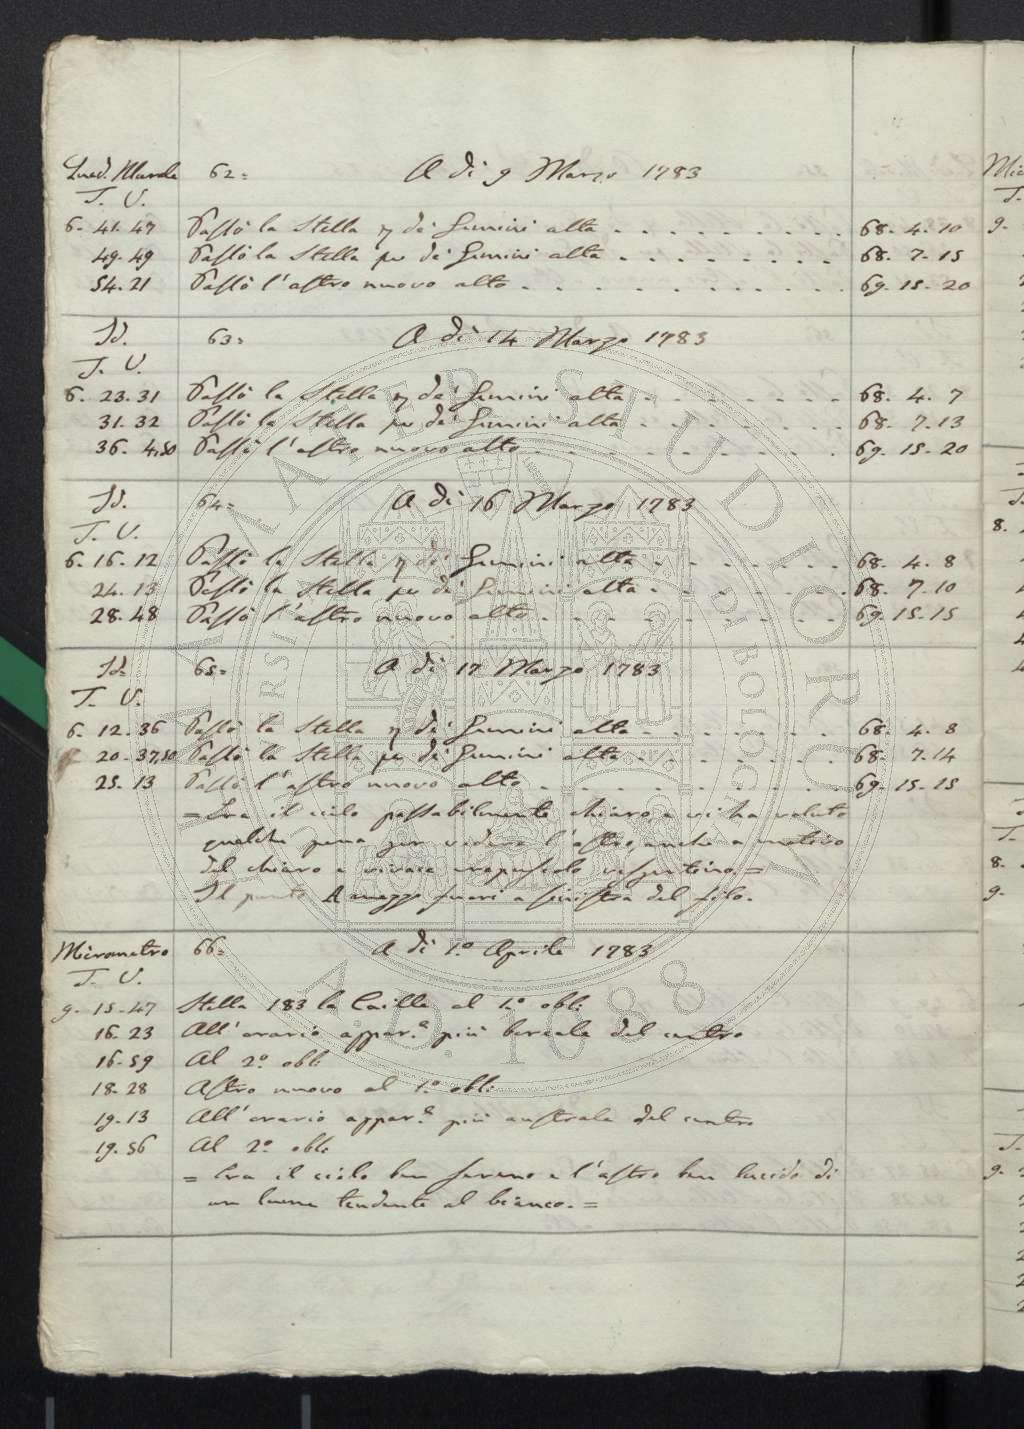 Quad. Murale 62= A di 9 Marzo 1783
T. V.
6. 41. 47 Passò la Stella η de' Gemini alta 68. 4. 10
49. 49 Passò la Stella μ de' Gemini alta 68. 7. 15
54. 21 Passò l'astro nuovo alto 69. 15. 20
Id. 63= A di 14 Marzo 1783
T. V.
6. 23. 31 Passò la Stella η de' Gemini alta 68. 4. 7
31. 32 Passò la Stella μ de' Gemini alta 68. 7. 13
36. 4,50 Passò l'astro nuovo alto 69. 15. 20
Id. 64= A di 16 Marzo 1783
T. V.
6. 16. 12 Passò la Stella η de' Gemini alta 68. 4. 8
24. 13 Passò la Stella μ de' Gemini alta 68. 7. 10
28. 48 Passò l'astro nuovo alto 69. 15. 15
Id. 65= A di 17 Marzo 1783
T. V.
6. 12. 36 Passò la Stella η de' Gemini alta 68. 4. 8
20. 37,50 Passò la Stella μ de' Gemini alta 68. 7. 14
25. 13 Passò l'astro nuovo alto 69. 15. 15
= Era il cielo passabilmente chiaro, e vi ha voluto
qualche pena per vedere l'astro, anche a motivo
del chiaro e vivace crepuscolo vespertino. =
Il punto A mezzo fuori a sinistra del filo.
Micrometro 66= A di 1.º Aprile 1783
T. V.
9. 15. 47 Stella 183 la Caille al 1.º obl:
16. 23 All'orario appar.e più boreale del centro
16. 59 Al 2.º obl:
18. 28 Astro nuovo al 1.º obl:
19. 13 All'orario appar.e più australe del centro
19. 56 Al 2.º obl:
= Era il cielo ben sereno e l'astro ben lucido di
un lume tendente al bianco. =
ALMA MATER STUDIORUM
UNIVERSITÀ DI BOLOGNA
A.D. 1088